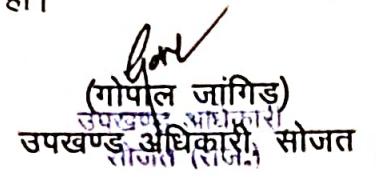 हो।
(गोपाल जांगिड़)
उपखण्ड अधिकारी
उपखण्ड अधिकारी, सोजत
सोजत (राज.)